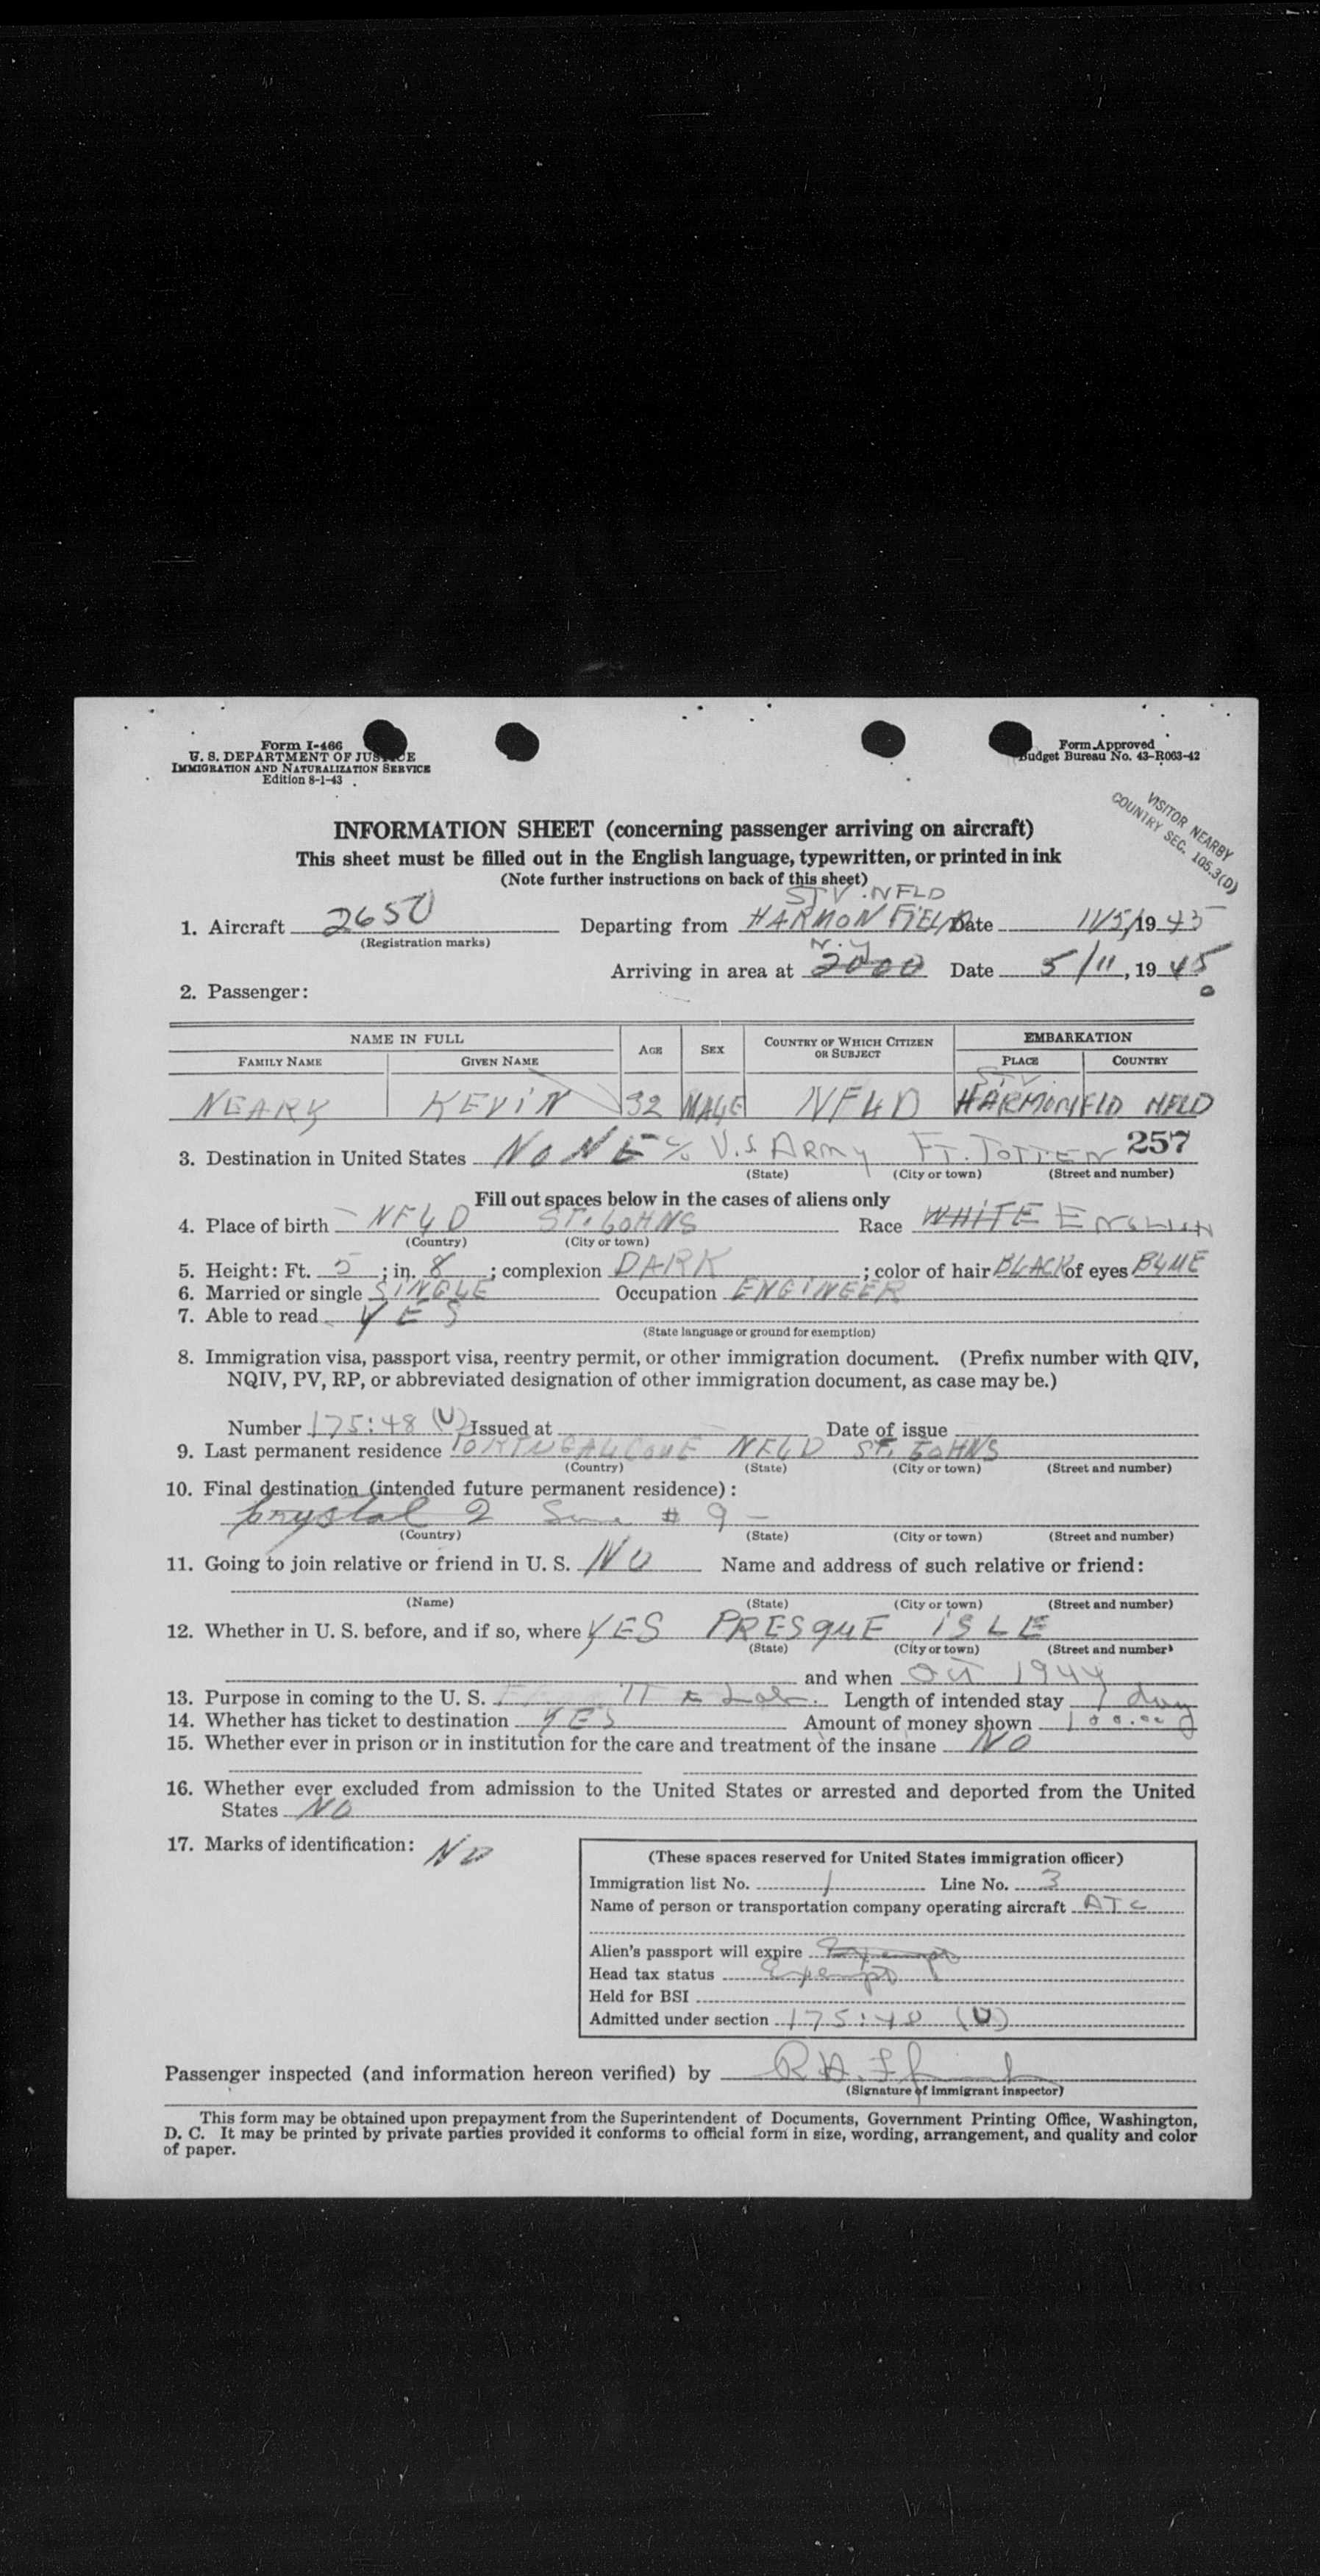 Form I-466
U. S. DEPARTMENT OF JUSTICE
IMMIGRATION AND NATURALIZATION SERVICE
Edition 8-1-43
Form Approved
Budget Bureau No. 43-R063-42
VISITOR NEARBY
COUNTRY SEC. 105.3(D)
INFORMATION SHEET (concerning passenger arriving on aircraft)
This sheet must be filled out in the English language, typewritten, or printed in ink
(Note further instructions on back of this sheet)
STV. NFLD
1. Aircraft 2650 Departing from HARMON FIELD Date 11/5/19 45
(Registration marks)
N.Y
Arriving in area at 2000 Date 5/11, 19 45
2. Passenger:
NAME IN FULL AGE SEX COUNTRY OF WHICH CITIZEN OR SUBJECT EMBARKATION
FAMILY NAME GIVEN NAME PLACE COUNTRY
STV
NEARY KEVIN 32 MALE NFLD HARMONFIELD NFLD
3. Destination in United States NONE c/o U.S. ARMY FT. TOTTEN 257
(State) (City or town) (Street and number)
Fill out spaces below in the cases of aliens only
4. Place of birth NFLD ST. JOHNS Race WHITE ENGLISH
(Country) (City or town)
5. Height: Ft. 5; in. 8; complexion DARK; color of hair BLACK of eyes BLUE
6. Married or single SINGLE Occupation ENGINEER
7. Able to read YES
(State language or ground for exemption)
8. Immigration visa, passport visa, reentry permit, or other immigration document. (Prefix number with QIV,
NQIV, PV, RP, or abbreviated designation of other immigration document, as case may be.)
Number 175:48 (U) Issued at Date of issue
9. Last permanent residence NFLD ST. JOHNS
(Country) (State) (City or town) (Street and number)
10. Final destination (intended future permanent residence):
Crystal 2 Same # 9
(Country) (State) (City or town) (Street and number)
11. Going to join relative or friend in U. S. NO Name and address of such relative or friend:
(Name) (State) (City or town) (Street and number)
12. Whether in U. S. before, and if so, where YES PRESQUE ISLE
(State) (City or town) (Street and number)
and when Oct 1944
13. Purpose in coming to the U. S. Length of intended stay 1 day
14. Whether has ticket to destination YES Amount of money shown 100.00
15. Whether ever in prison or in institution for the care and treatment of the insane NO
16. Whether ever excluded from admission to the United States or arrested and deported from the United
States NO
17. Marks of identification: NO
(These spaces reserved for United States immigration officer)
Immigration list No. 1 Line No. 3
Name of person or transportation company operating aircraft ATC
Alien's passport will expire Exempt
Head tax status Exempt
Held for BSI
Admitted under section 175:48 (U)
Passenger inspected (and information hereon verified) by
(Signature of immigrant inspector)
This form may be obtained upon prepayment from the Superintendent of Documents, Government Printing Office, Washington,
D. C. It may be printed by private parties provided it conforms to official form in size, wording, arrangement, and quality and color
of paper.